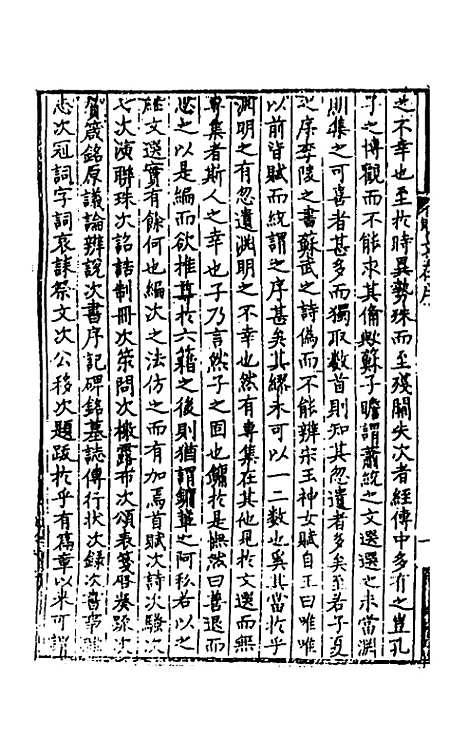 之不幸也至於時異勢殊而至殘闕失次者經傳中多有之豈孔
子之博觀而不能求其備歟蘇子瞻謂蕭統之文選選之未當淵
明集之可喜者甚多而獨取數首則知其忽遺者多矣至若子夏
之序李陵之書蘇武之詩偽而不能辨宋玉神女賦自王曰唯唯
以前皆賦而統謂之序甚矣其繆未可以一二數也奚其當於乎
淵明之有忽遺淵明之不幸也然有專集在其他見於文選而無
專集者斯人之幸也子乃言然子之固也鏞於是憮然曰善退而
思之以是編而欲推尊於六籍之後則猶謂鏞輩之阿私若以之
維文選實有餘何也編次之法仿之而有加焉首賦次詩次騷次
七次演聯珠次詔誥制冊次策問次檄露布次頌表箋啓奏疏次
贊箴銘原議論辨說次書序記碑銘墓誌傳行狀次錄次
志次冠詞字詞哀誄祭文次公移次題跋於乎有為章以來可謂